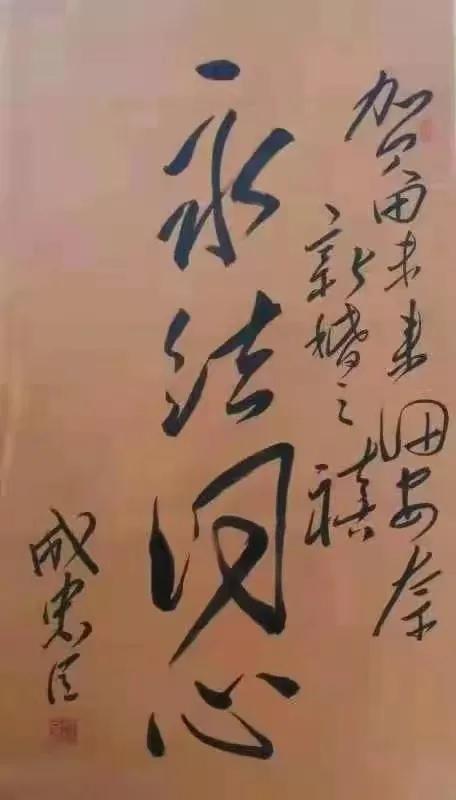 贺未来安奈
新婚之禧
永结同心
成忠臣